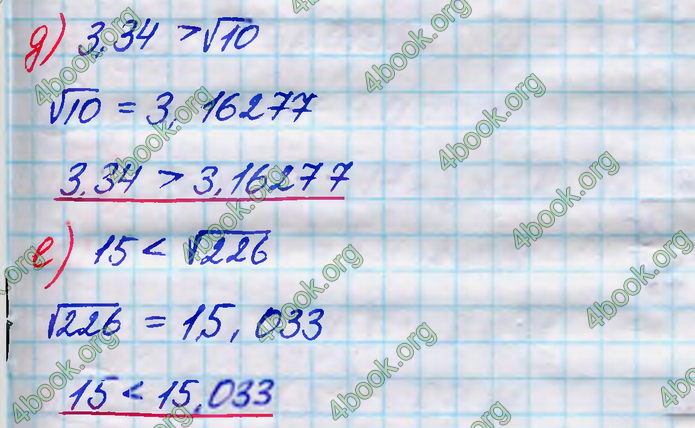 д) 3.34 > √10
√10 = 3,16277
3.34 > 3,16277
е) 15 < √226
√226 = 15,033
15 < 15,033
4book.org
4book.org
4book.org
4book.org
4book.org
4book.org
4book.org
4book.org
4book.org
4book.org
4book.org
4book.org